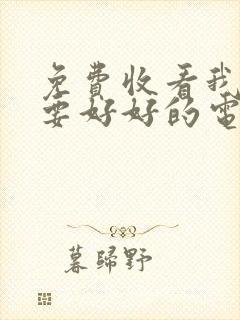 免費收看我
要好好的電
暮歸野